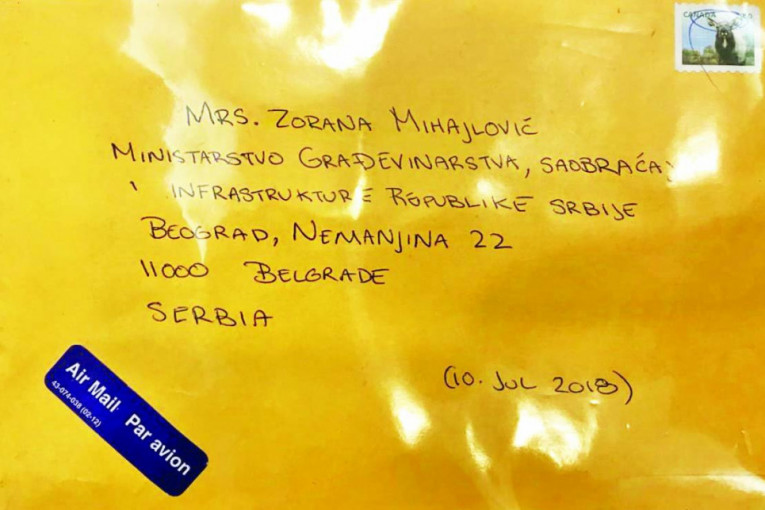 CANADA
MRS. ZORANA MIHAJLOVIĆ
MINISTARSTVO GRAĐEVINARSTVA, SAOBRAĆAJ
I INFRASTRUKTURE REPUBLIKE SRBIJE
BEOGRAD, NEMANJINA 22
11000 BELGRADE
SERBIA
(10. JUL 2018)
Air Mail Par avion
43-074-038 (02-12)